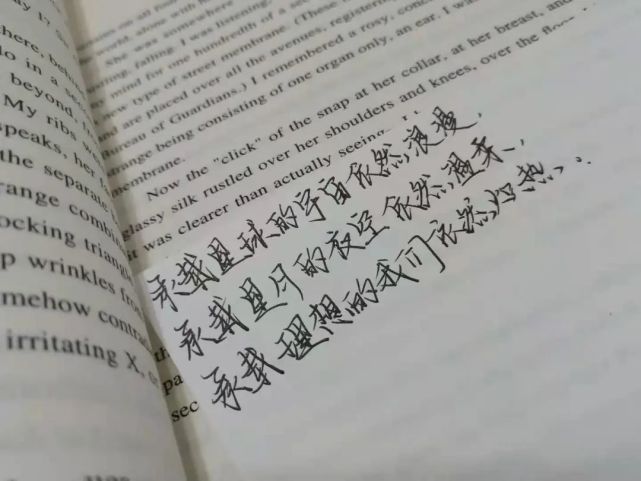 beyond,
My ribs
speaks, her
the separate
wrinkles
irritating X,
on all four
world, alone with
She was somewhere
falling. I was listening,
my mind for one hundredth of a
new type of street membrane. (These
and are placed over all the avenues, registering
Bureau of Guardians.) I remembered a rosy,
being consisting of one organ only, an ear. I
membrane.
Now the "click" of the snap at her collar, at her breast, and
glassy silk rustled over her shoulders and knees, over the
it was clearer than actually seeing
承载星球的宇宙依然浪漫,
承载星月的夜空依然温柔,
承载理想的我们依然热..